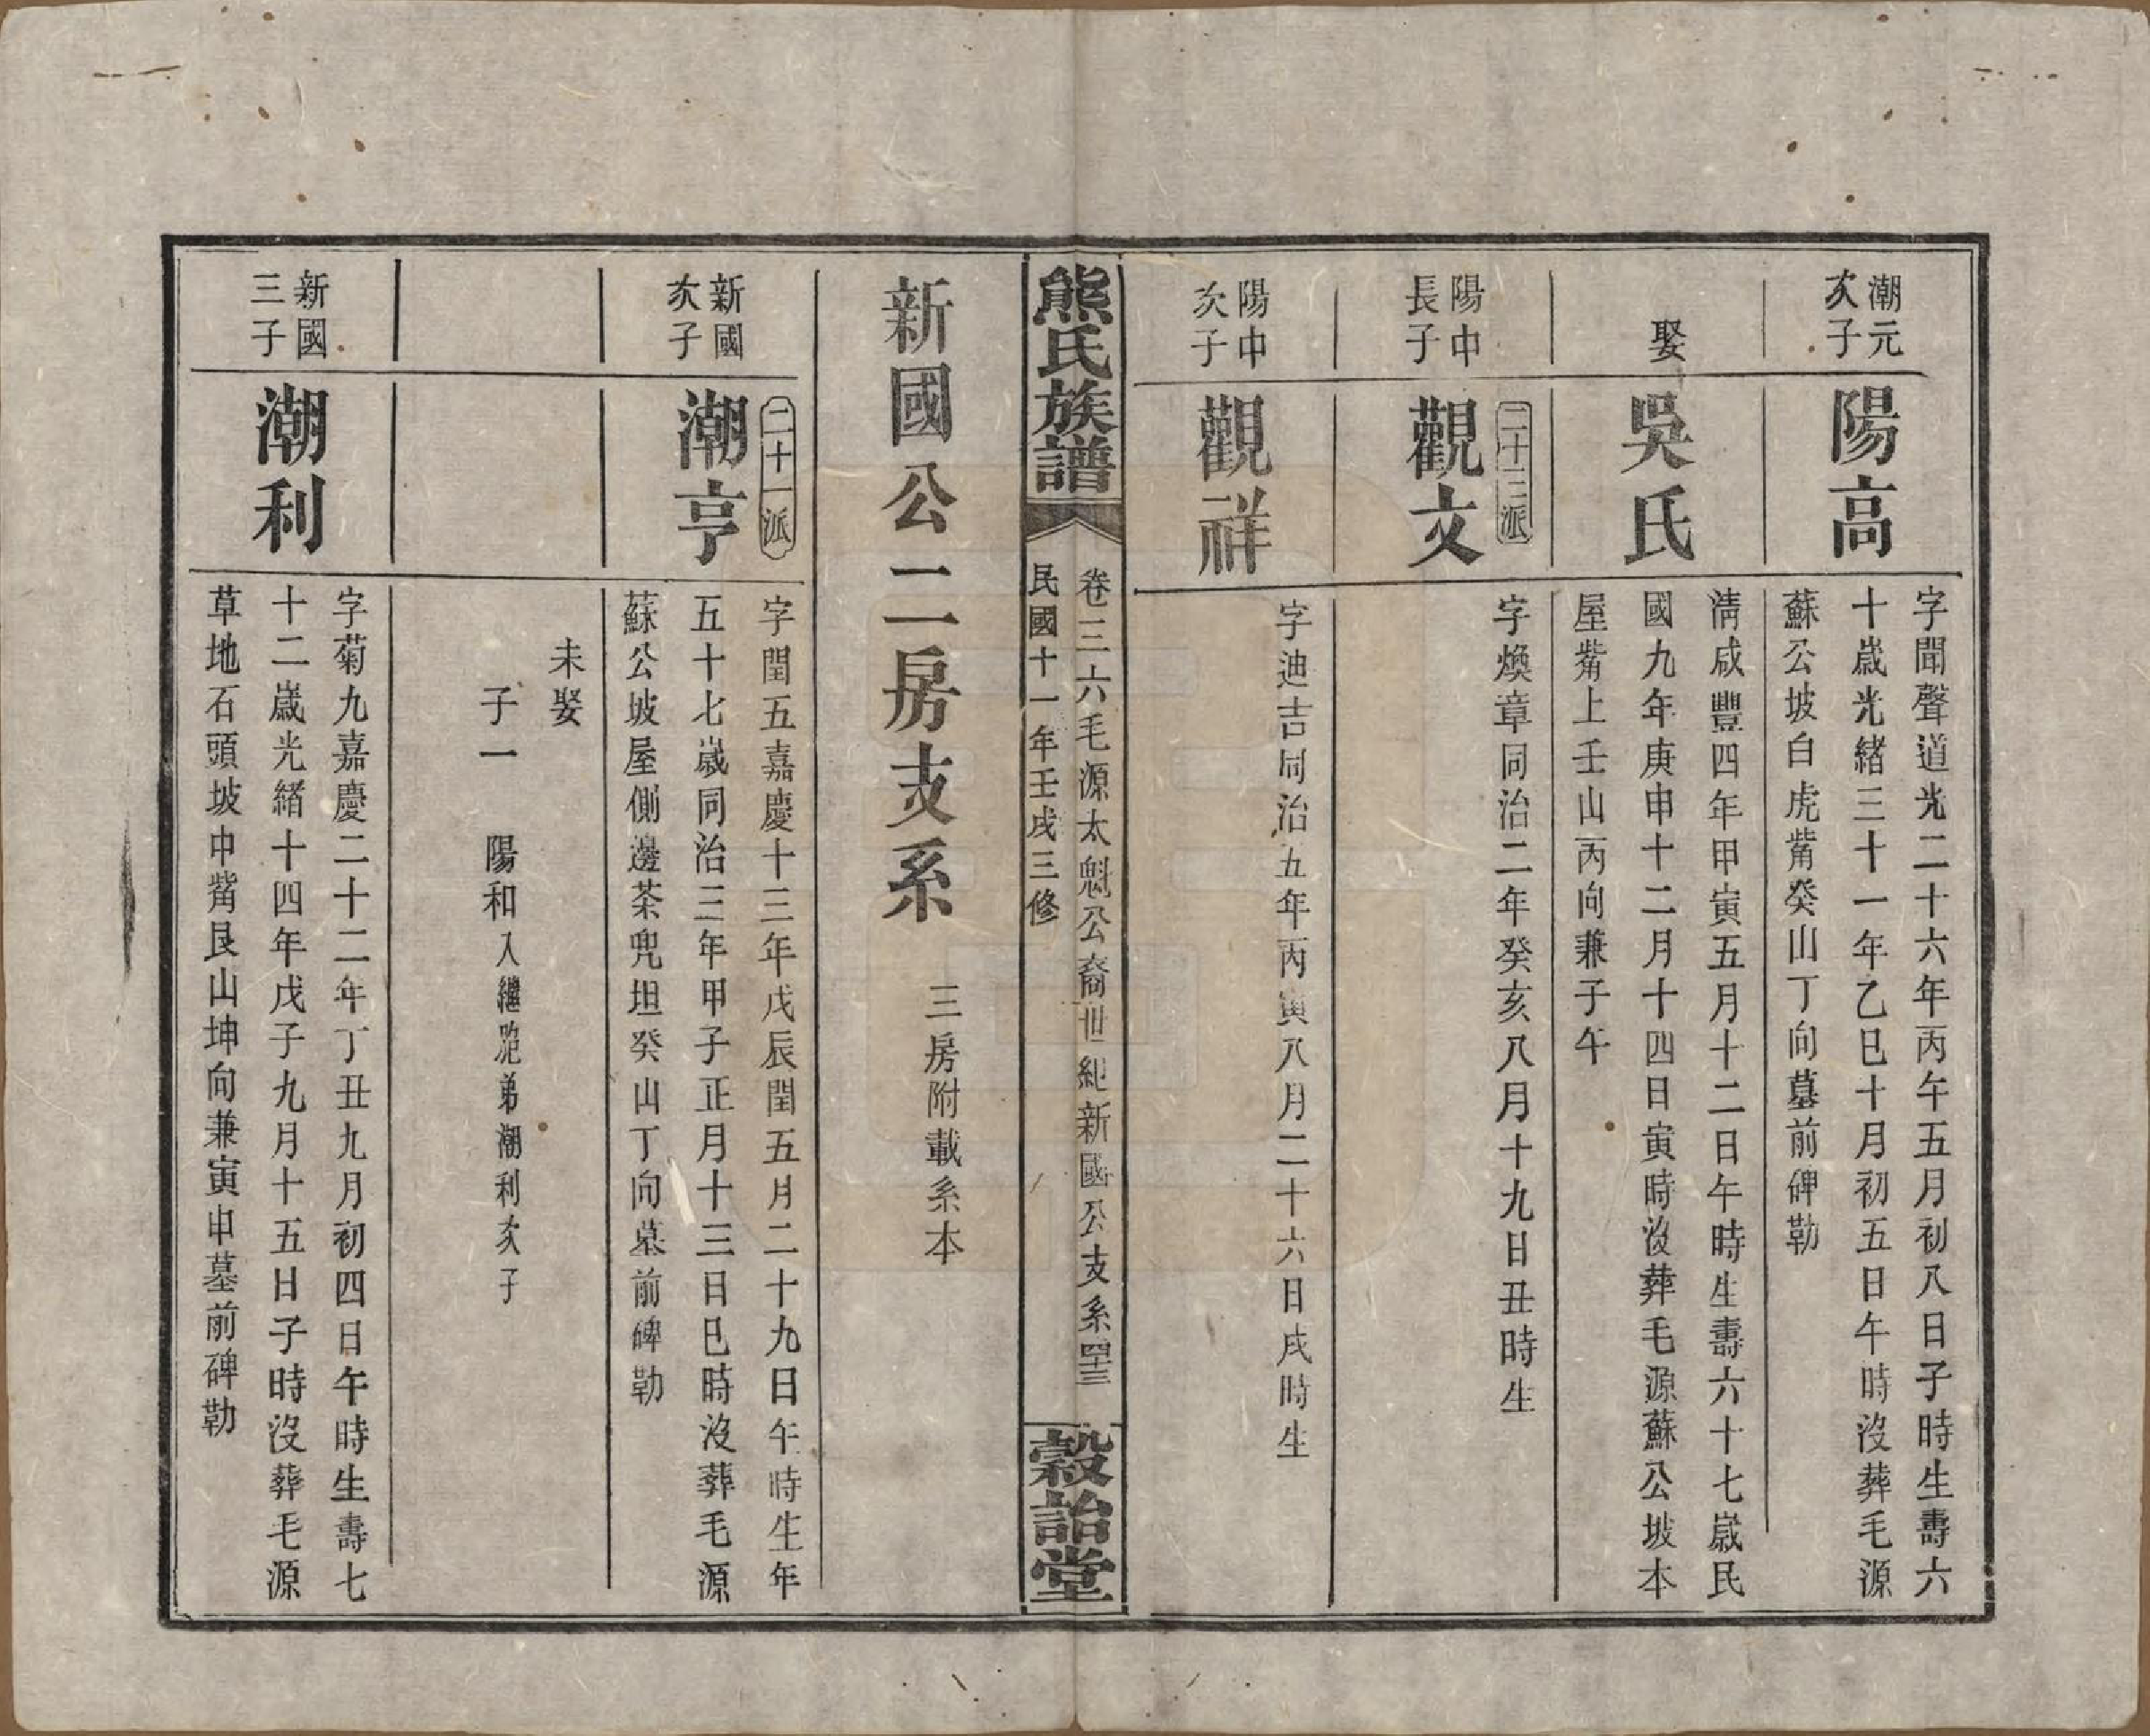 潮元
次子
陽高
字聞聲道光二十六年丙午五月初八日子時生壽六
十歲光緒三十一年乙巳十月初五日午時沒葬毛源
蘇公坡白虎觜癸山丁向墓前碑勒
娶
吳氏
淸咸豐四年甲寅五月十二日午時生壽六十七歲民
國九年庚申十二月十四日寅時沒葬毛源蘇公坡本
屋觜上壬山丙向兼子午
陽中
長子
二十三派
觀文
字煥章同治二年癸亥八月十九日丑時生
陽中
次子
觀祥
字迪吉同治五年丙寅八月二十六日戌時生
熊氏族譜
卷三六毛源太魁公裔世紀新國公支系四十三
民國十一年壬戌三修
穀詒堂
新國公二房支系
三房附載系本
新國
次子
二十一派
潮亨
字閏五嘉慶十三年戊辰閏五月二十九日午時生年
五十七歲同治三年甲子正月十三日巳時沒葬毛源
蘇公坡屋側邊茶兜坦癸山丁向墓前碑勒
未娶
子一 陽和入繼胞弟潮利次子
新國
三子
潮利
字菊九嘉慶二十二年丁丑九月初四日午時生壽七
十二歲光緒十四年戊子九月十五日子時沒葬毛源
草地石頭坡中觜艮山坤向兼寅申墓前碑勒